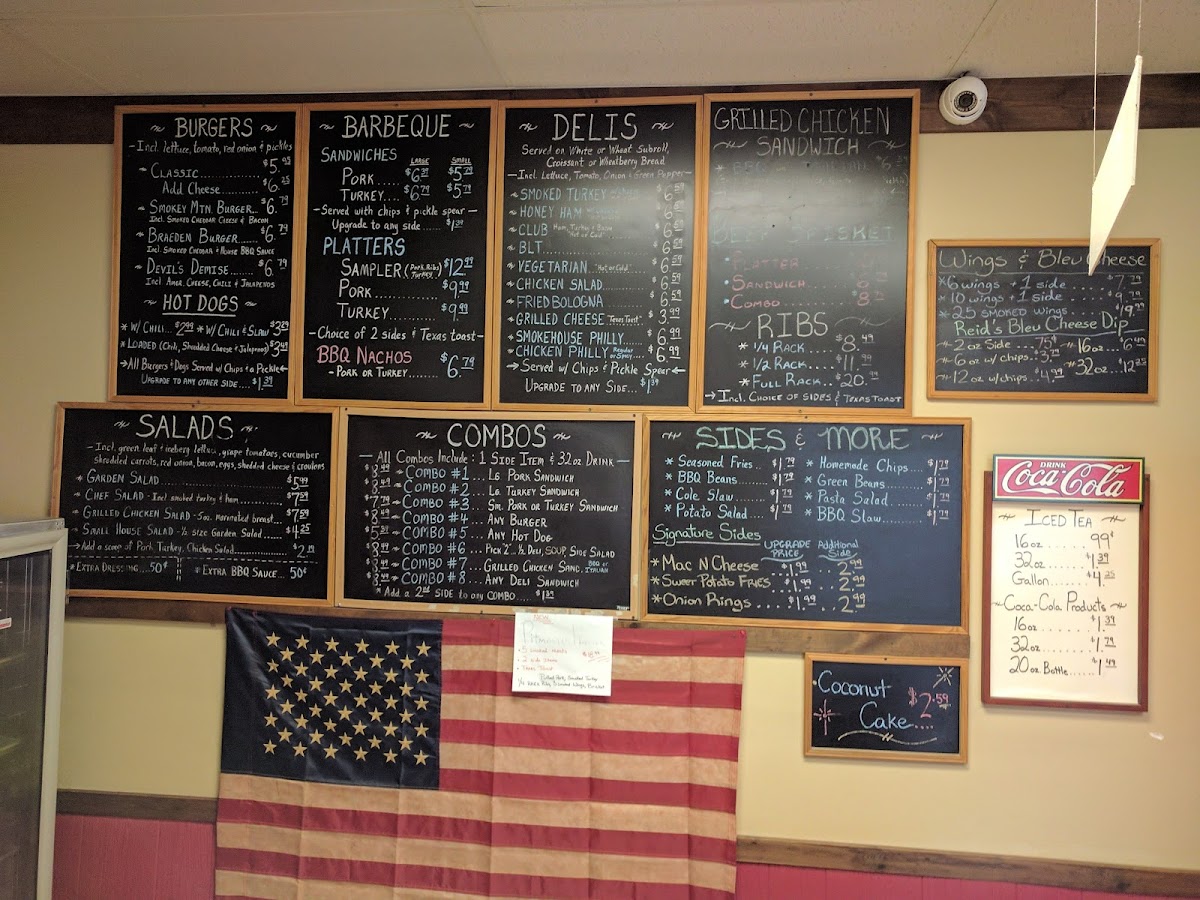 ~ BURGERS ~
~ Incl. lettuce, tomato, red onion & pickles
~ CLASSIC........ $5.99
Add Cheese........... $6.25
~ SMOKEY MTN. BURGER.. $6.79
INCL. SMOKED CHEDDAR CHEESE & BACON
~ BRAEDEN BURGER...... $6.79
INCL. SMOKED CHEDDAR & HOUSE BBQ SAUCE
~ DEVIL'S DEMISE....... $6.79
INCL. AMER. CHEESE, CHILI & JALAPENOS
~ HOT DOGS ~
* W/ CHILI... $2.99 * W/ CHILI & SLAW $3.29
* LOADED (Chili, Shredded Cheese & Jalapenos) $3.49
→ All Burgers & Dogs Served w/ Chips & a Pickle ←
UPGRADE TO ANY OTHER SIDE.... $1.39
~ BARBEQUE ~
SANDWICHES LARGE SMALL
PORK.... $6.39 $5.79
TURKEY.... $6.79 $5.79
- Served with chips & pickle spear -
Upgrade to any side...... $1.39
PLATTERS
SAMPLER (Pork, Ribs, Turkey) $12.99
PORK................ $9.99
TURKEY............ $9.99
- Choice of 2 sides & Texas toast -
BBQ NACHOS
- PORK OR TURKEY...... $6.79
~ DELIS ~
Served on White or Wheat Subroll,
Croissant or Wheatberry Bread
- Incl. Lettuce, Tomato, Onion & Green Pepper -
~ SMOKED TURKEY $6.59
~ HONEY HAM $6.59
~ CLUB Ham, Turkey & Bacon "Hot or Cold" $6.59
~ BLT $6.59
~ VEGETARIAN "Hot or Cold" $6.59
~ CHICKEN SALAD $6.59
~ FRIED BOLOGNA $6.59
~ GRILLED CHEESE "Texas Toast" $3.99
~ SMOKEHOUSE PHILLY $6.99
~ CHICKEN PHILLY Regular or Spicy $6.99
→ Served w/ Chips & Pickle Spear ←
UPGRADE TO ANY SIDE... $1.39
GRILLED CHICKEN
~ SANDWICH ~
BRISKET
* PLATTER
* SANDWICH
* COMBO
~ RIBS ~
* 1/4 RACK... $8.49
* 1/2 RACK... $11.99
* FULL RACK... $20.99
→ INCL. CHOICE OF SIDES & TEXAS TOAST
WINGS & BLEU CHEESE
* 6 wings + 1 side ....... $7.79
* 10 wings + 1 side ..... $9.79
* 25 SMOKED WINGS..... $19.99
Reid's Bleu Cheese Dip
~ 2 oz Side...... 75¢ ~ 16oz... $6.49
~ 6 oz w/ chips.. $3.79 ~ 32oz... $12.25
~ 12 oz w/chips... $4.99
~ SALADS ~
- Incl. green leaf & iceberg lettuce, grape tomatoes, cucumber
shredded carrots, red onion, bacon, eggs, shredded cheese & croutons
~ GARDEN SALAD........ $5.99
~ CHEF SALAD - Incl. smoked turkey & ham........ $7.59
~ GRILLED CHICKEN SALAD - 5oz. marinated breast.... $7.59
~ SMALL HOUSE SALAD - 1/2 size Garden Salad...... $4.25
→ Add a scoop of Pork, Turkey, Chicken Salad........ $2.19
* EXTRA DRESSING...50¢ * EXTRA BBQ SAUCE... 50¢
~ COMBOS ~
- All Combos Include: 1 SIDE ITEM & 32oz DRINK -
~ COMBO #1... LG PORK SANDWICH
~ COMBO #2... LG. TURKEY SANDWICH
~ COMBO #3... SM. PORK OR TURKEY SANDWICH
~ COMBO #4... ANY BURGER
~ COMBO #5... ANY HOT DOG
~ COMBO #6... PICK 2 - 1/2 DELI, SOUP SIDE SALAD
~ COMBO #7... GRILLED CHICKEN SAND. BBQ or ITALIAN
~ COMBO #8... ANY DELI SANDWICH
* Add a 2nd SIDE to any COMBO.... $1.39
~ SIDES & MORE ~
* Seasoned Fries.. $1.79 * Homemade Chips.... $1.79
* BBQ Beans...... $1.79 * Green Beans..... $1.79
* Cole Slaw...... $1.79 * Pasta Salad..... $1.79
* Potato Salad... $1.79 * BBQ Slaw...... $1.79
Signature Sides UPGRADE PRICE Additional Side
* Mac N Cheese.... $1.99 2.99
* Sweet Potato FRIES $1.99 2.99
* Onion Rings.... $1.99 2.99
DRINK
Coca-Cola
~ ICED TEA ~
16oz....... 99¢
32oz....... $1.39
Gallon..... $4.25
~ Coca-Cola Products ~
16oz....... $1.39
32oz....... $1.79
20oz Bottle.... $1.49
Coconut
Cake.... $2.59